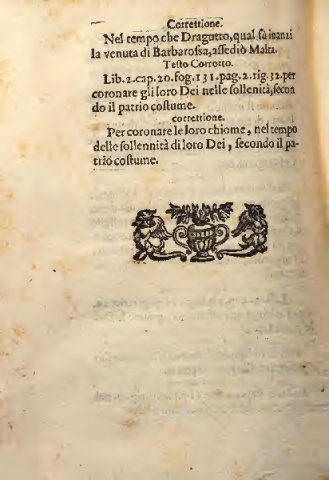 Correttione.
Nel tempo che Dragutto, qual fù inanzi
la venuta di Barbarossa, assediò Malta.
Testo Corrotto.
Lib. 2. cap. 20. fog. 131. pag. 2. rig. 32. per
coronare gli loro Dei nelle sollenità, secon
do il patrio costume.
correttione.
Per coronare le loro chiome, nel tempo
delle sollennità di loro Dei, secondo il pa-
trio costume.